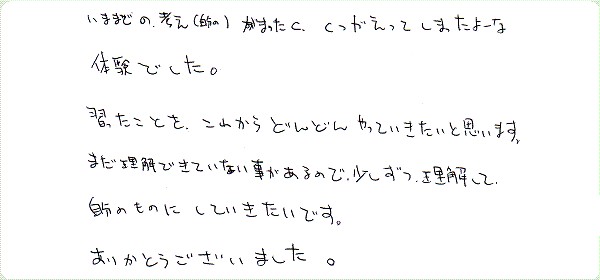 いままでの、考え(自分の)がまったく、くつがえってしまったよーな
体験でした。
習ったことを、これからどんどんやっていきたいと思います。
まだ理解できていない事があるので、少しずつ、理解して、
自分のものにしていきたいです。
ありがとうございました。